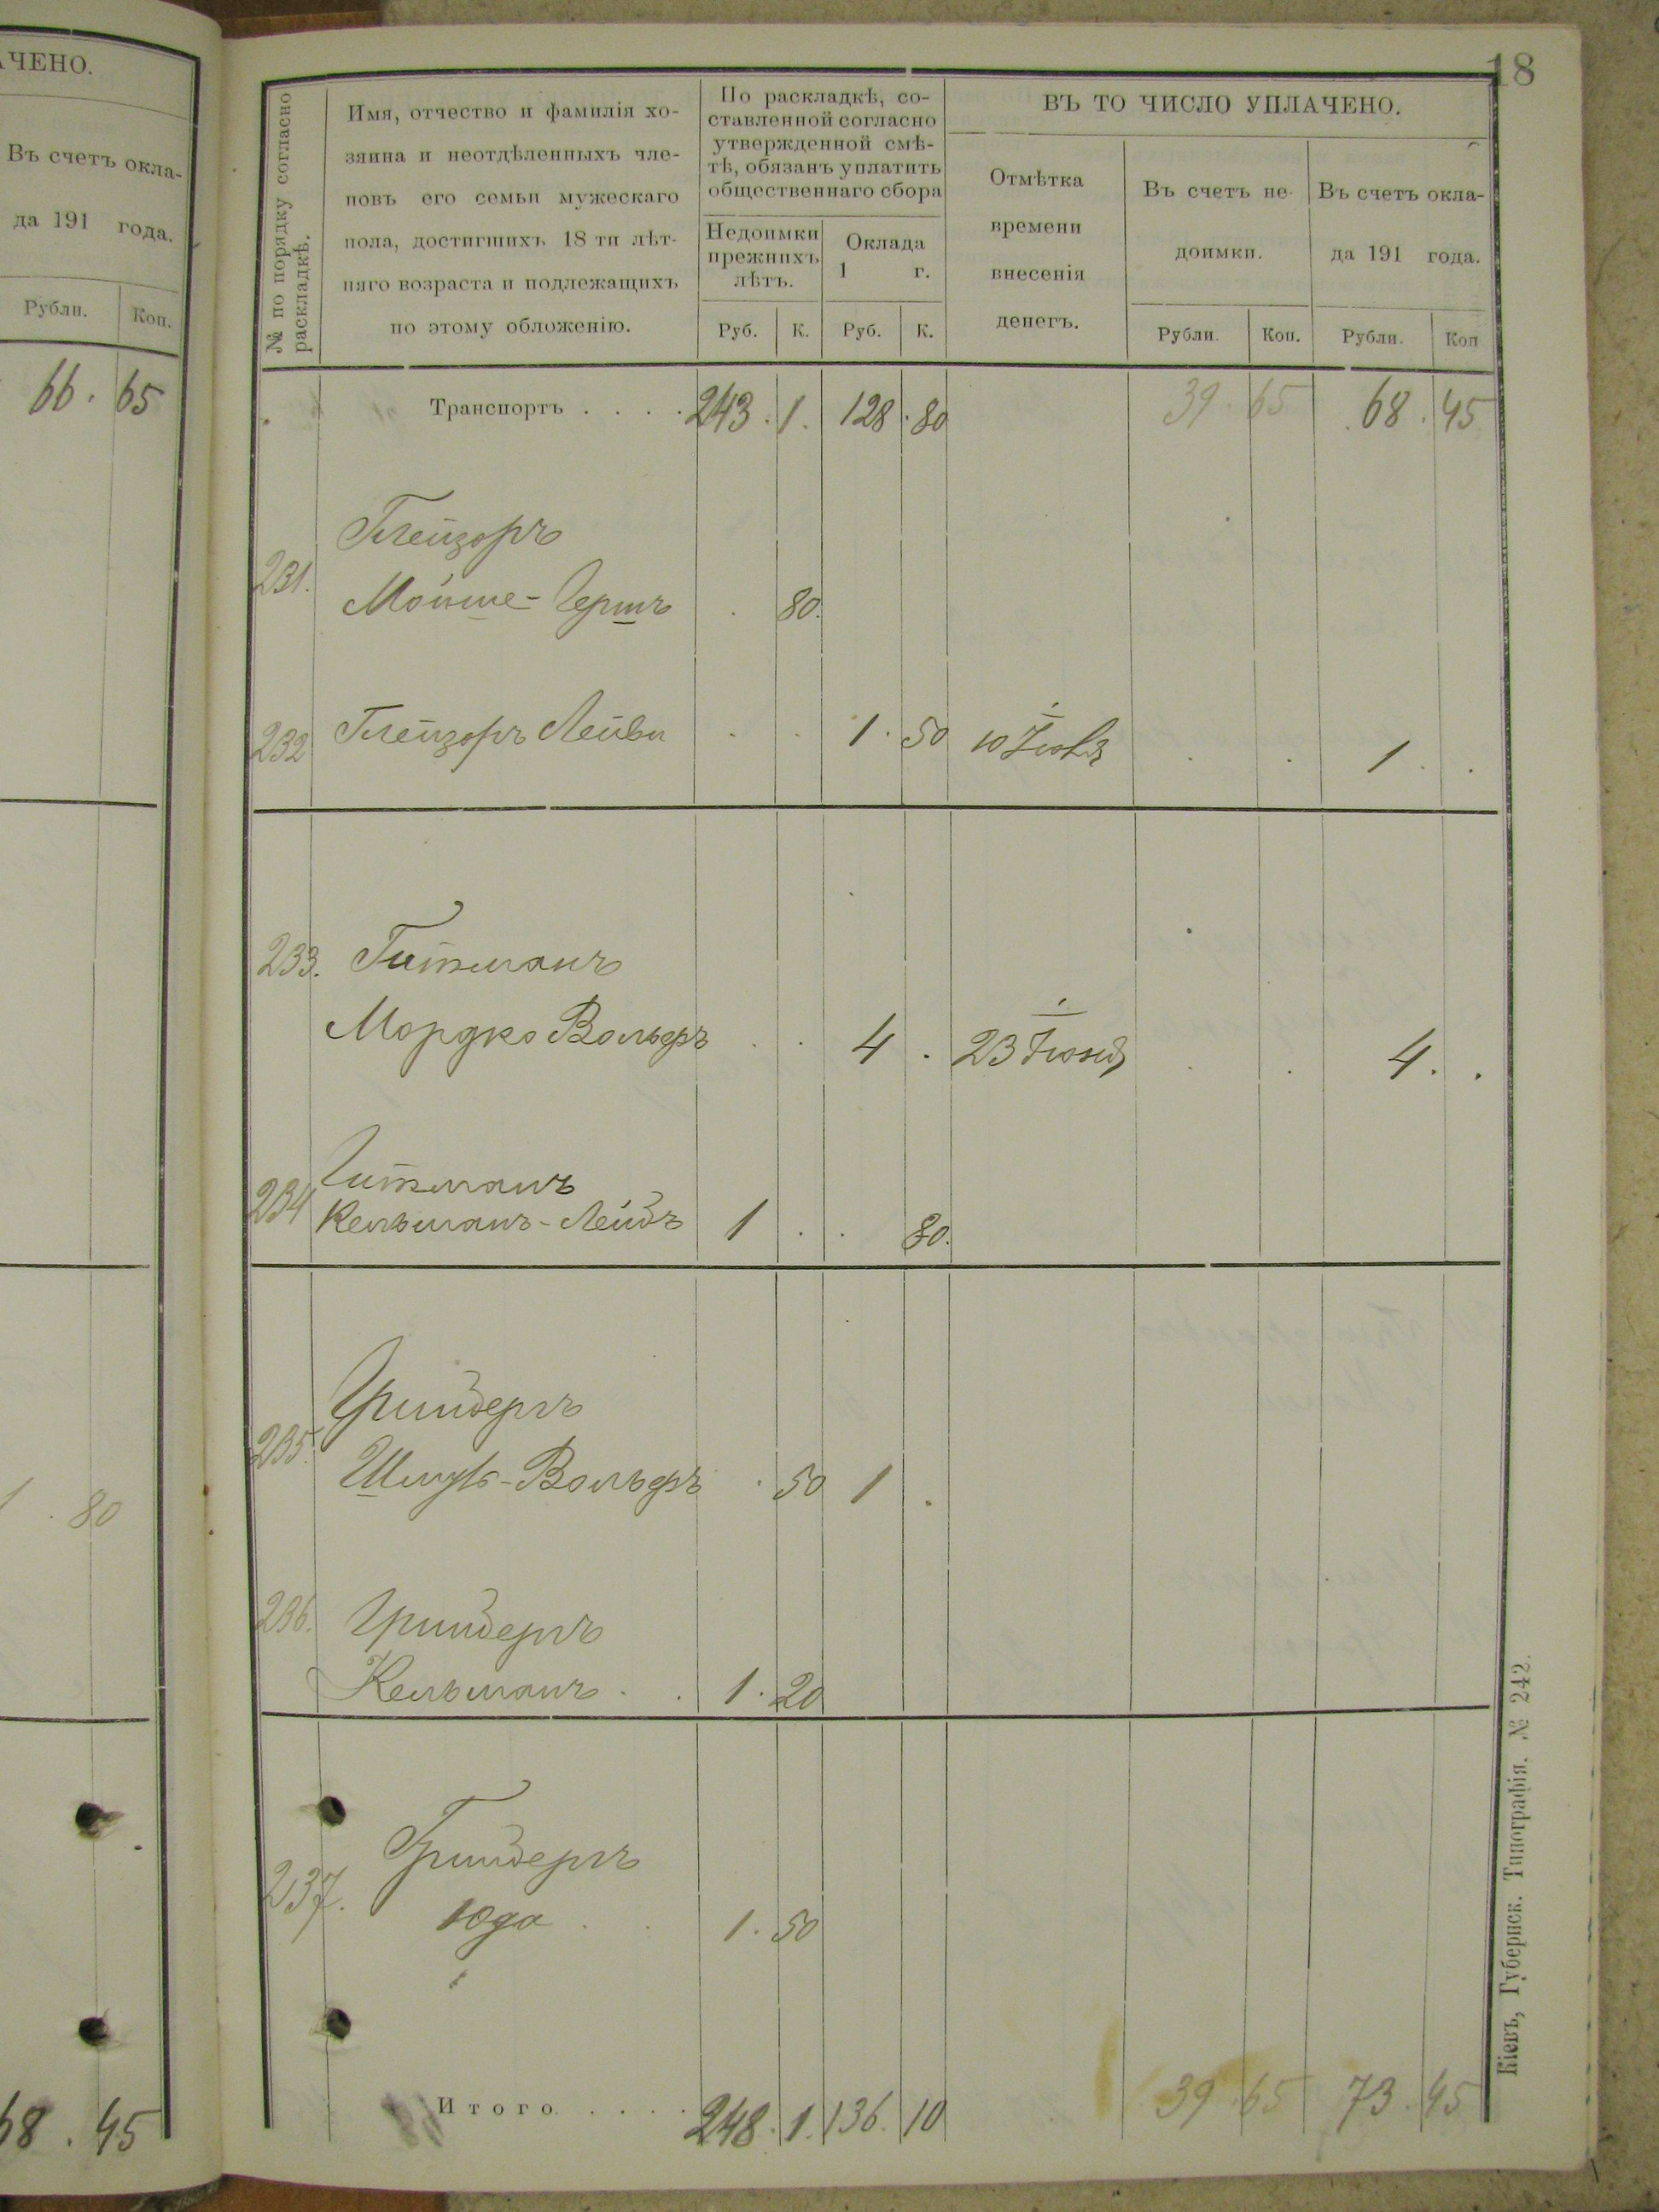 АЧЕНО.
Въ счетъ окла-
да 191 года.
Рубли. Коп.
66. 65
1. 80
68. 45
18
№ по порядку согласно
раскладкѣ.
Имя, отчество и фамилія хо-
зяина и неотдѣленныхъ чле-
новъ его семьи мужескаго
пола, достигшихъ 18 ти лѣт-
няго возраста и подлежащихъ
по этому обложенію.
По раскладкѣ, со-
ставленной согласно
утвержденной смѣ-
тѣ, обязанъ уплатить
общественнаго сбора
Недоимки
прежнихъ
лѣтъ.
Оклада
1 г.
Руб. К. Руб. К.
ВЪ ТО ЧИСЛО УПЛАЧЕНО.
Отмѣтка
времени
внесенія
денегъ.
Въ счетъ не-
доимки.
Въ счетъ окла-
да 191 года.
Рубли. Коп. Рубли. Коп
Транспортъ . . . . 243. 1. 128. 80 39. 65 68. 45
Глейзоръ
231. Мойше-Гершъ . 80.
232 Глейзоръ Лейви . . 1. 50 10 1 . .
233. Гитманъ
Мордко Вольфъ . . 4 . 23 Іюня . . 4. .
Гитманъ
234 Кельманъ-Лейбъ 1 . . 80.
Гринбергъ
235. Шмуль-Вольфъ . 50 1 .
236. Гринбергъ
Кельманъ . . 1. 20
Гринбергъ
237. Юда . . 1. 50
Итого. . . . . 248. 1. 136. 10 39. 65 73. 45
Кіевъ, Губернск. Типографія. № 242.